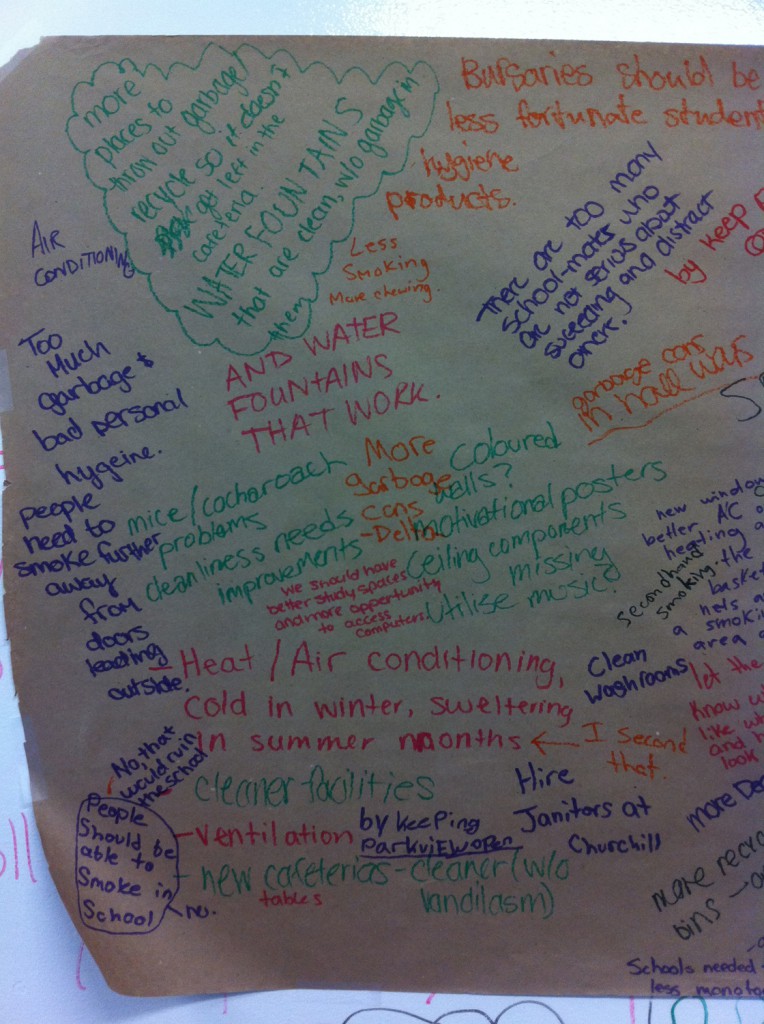 more
places to
throw out garbage/
recycle so it doesn't
get left in the
cafeteria.
WATER FOUNTAINS
that are clean, w/o garbage in
them
Bursaries should be
less fortunate student
hygiene
products.
AIR
CONDITIONING
Less
Smoking
More chewing.
There are too many
school-mates who
are not serious about
succeeding and distract
others.
by keep
AND WATER
FOUNTAINS
THAT WORK.
garbage cans
in hall ways
Too
Much
garbage &
bad personal
hygeine.
People
need to
smoke further
away
from
doors
leading
outside.
mice/cocharoach
problems
cleanliness needs
improvements
More
Garbage
Cans
-Delta
Coloured
walls?
Motivational posters
Ceiling components
missing
Utilise music?
we should have
better study spaces
and more opportunity
to access
computers
new window
better AC
heating
secondhand
smoking.
the
basket
nets
a smoking
area
Clean
Washrooms
let the
Know
like
and
look
- Heat / Air conditioning,
cold in winter, sweltering
in summer months ← I second
that.
No, that
would ruin
the school
People
Should be
able to
Smoke in
School
- no.
cleaner facilities
- Ventilation
by keeping
ParkviEW open
Hire
Janitors at
Churchill
- new cafeterias - cleaner (w/o
tables
landilasm)
more
more recyc
bins
Schools needed
less monoto